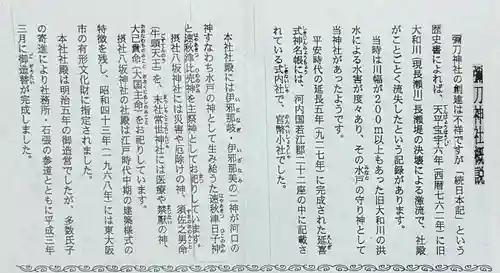 彌刀神社概説
彌刀神社の創建は不祥ですが「続日本記」という
歴史書によれば、天平宝字六年(西暦七六二年)に旧
大和川(現長瀬川)長瀬堤の決壊による激流で、社殿
がことごとく流失したという記録があります。
当時は川幅が200m以上もあった旧大和川の洪
水による水害が度々あり、その水戸の守り神として
当神社があったようです。
平安時代の延長五年(九二七年)に完成された延喜
式神名帳には、河内国若江郡二十二座の中に記載さ
れている式内社で、官幣小社でした。
本社社殿には伊邪那岐・伊邪那美の二神が河口の
神すなわち水戸の神として生み給うた速秋津日子神
と速秋津比売神を主祭神としてお祀りしています。
摂社八坂神社には災害や厄除けの神、須佐之男命
(牛頭天王)を、末社常世神社には医療や禁厭の神、
大己貴命(大国主命)をお祀りしています。
摂社八坂神社の社殿は江戸時代中期の建築様式の
特徴を残し、昭和四十三年(一九六八年)には東大阪
市の有形文化財に指定されました。
本社社殿は明治五年の御造営でしたが、多数氏子
の寄進により社務所・石張の参道とともに平成三年
三月に御造営が完成しました。